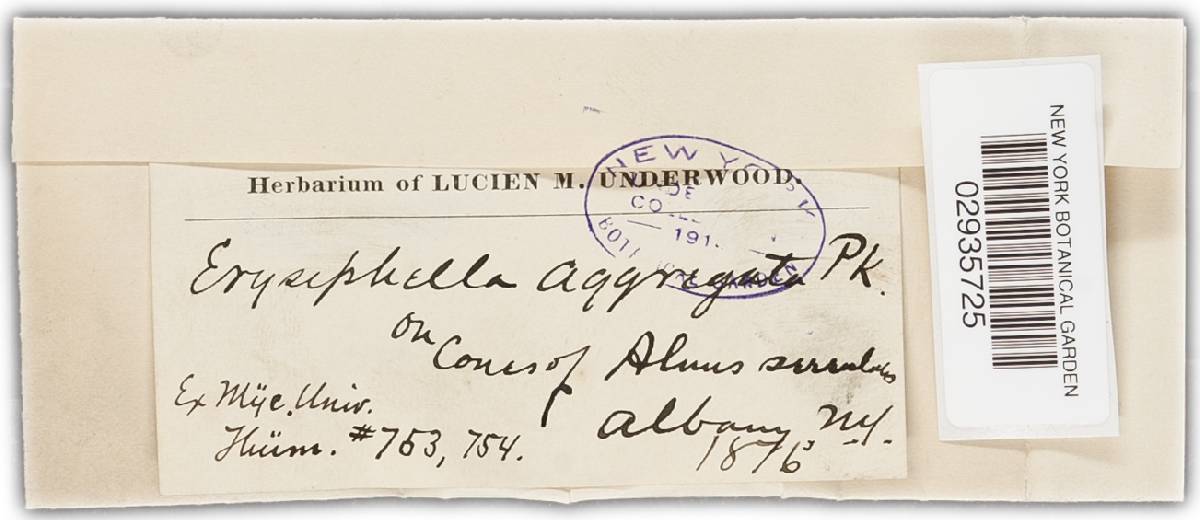 Herbarium of LUCIEN M. UNDERWOOD.
NEW YORK
CO
191.
BOT GARDEN
Erysiphella aggregata Pk.
on
Cones of Alnus serrulata
Ex Myc. Univ.
Thüm. #753, 754.
Albany N.Y.
1876
NEW YORK BOTANICAL GARDEN
02935725